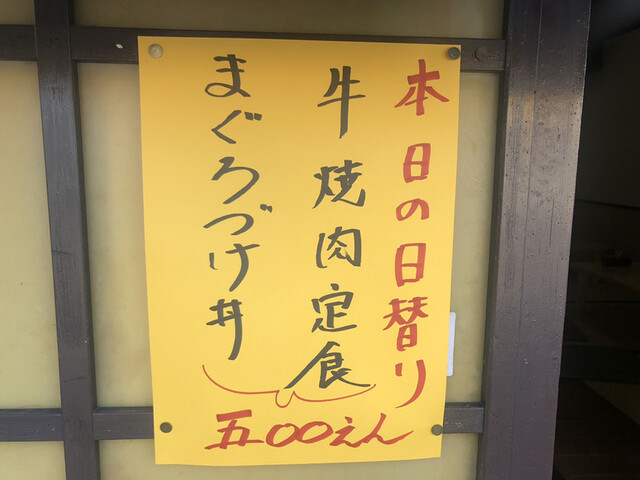 本日の日替り
牛焼肉定食
まぐろづけ丼
五〇〇えん